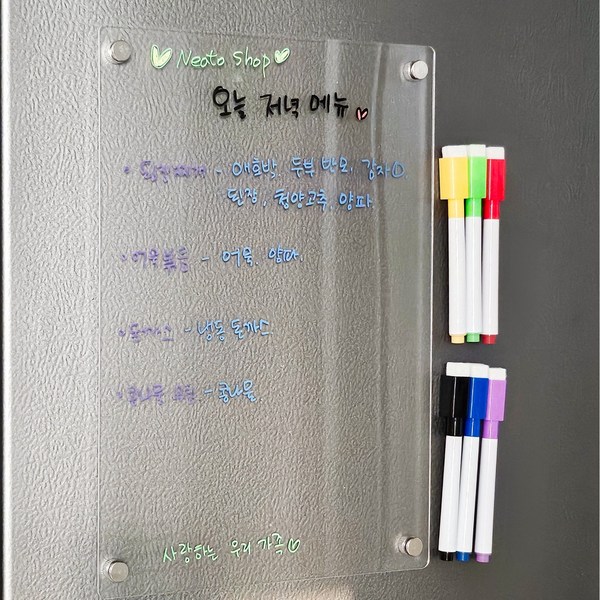 Neato Shop
오늘 저녁 메뉴
· 된장찌개 - 애호박, 두부 반모, 감자①,
된장, 청양고추, 양파.
· 어묵볶음 - 어묵, 양파.
· 돈까스 - 냉동 돈까스
· 콩나물 무침 - 콩나물
사랑하는 우리 가족